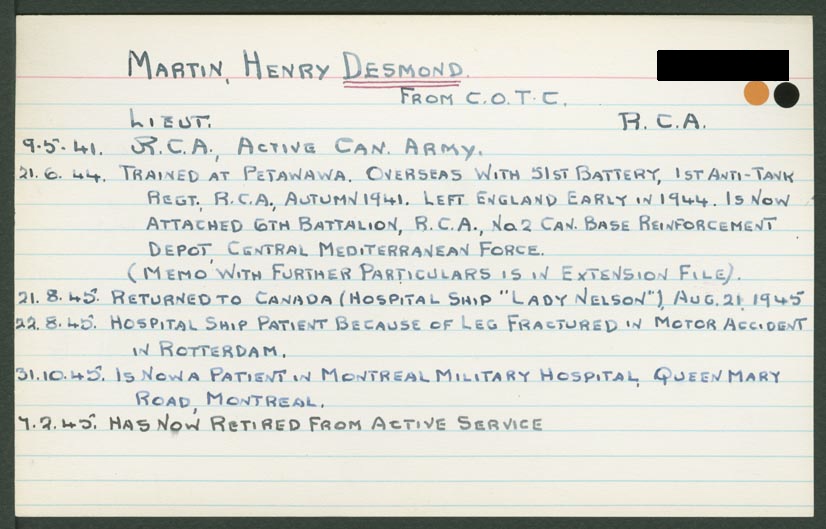 MARTIN, HENRY DESMOND.
FROM C.O.T.C.
LIEUT. R.C.A.
9.5.41. R.C.A., ACTIVE CAN. ARMY.
21.6.44. TRAINED AT PETAWAWA. OVERSEAS WITH 51ST BATTERY, 1ST ANTI-TANK
REGT, R.C.A., AUTUMN 1941. LEFT ENGLAND EARLY IN 1944. IS NOW
ATTACHED 6TH BATTALION, R.C.A., No2 CAN. BASE REINFORCEMENT
DEPOT, CENTRAL MEDITERRANEAN FORCE.
(MEMO WITH FURTHER PARTICULARS IS IN EXTENSION FILE).
21.8.45. RETURNED TO CANADA (HOSPITAL SHIP "LADY NELSON"), AUG. 21, 1945
22.8.45. HOSPITAL SHIP PATIENT BECAUSE OF LEG FRACTURED IN MOTOR ACCIDENT
IN ROTTERDAM.
31.10.45. IS NOW A PATIENT IN MONTREAL MILITARY HOSPITAL, QUEEN MARY
ROAD, MONTREAL.
7.2.45. HAS NOW RETIRED FROM ACTIVE SERVICE